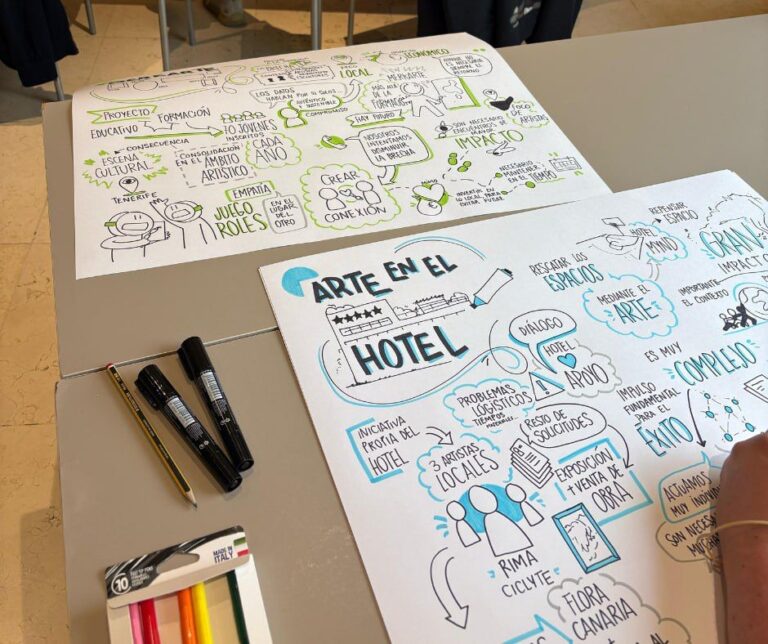 MERKARTE
PROYECTO
EDUCATIVO
FORMACIÓN
70 JÓVENES
INSCRITOS
CADA
AÑO
CONSECUENCIA
ESCENA
CULTURAL
CONSOLIDACIÓN
EN EL
ÁMBITO
ARTÍSTICO
TENERIFE
EMPATÍA
JUEGO
ROLES
EN EL
LUGAR DEL
OTRO
LOS DATOS
HABLAN POR SÍ SOLOS
AUTÉNTICO
SOSTENIBLE
COMPROMISO
LOCAL
HAY FUTURO
NOSOTROS
INTENTAMOS
DISMINUIR
LA BRECHA
CREAR
CONEXIÓN
ECONÓMICO
MERKARTE
MÁS ALLÁ
DE LA
FORMACIÓN
SON NECESARIO
ENCUENTROS DE
IMPACTO
FOCO
DE
ARTISTAS
NECESARIO
MANTENER
EN EL TIEMPO
INVERTIR EN
LO LOCAL PARA
EVITAR FUGAS
ARTE EN EL
HOTEL
INICIATIVA
PROPIA DEL
HOTEL
3 ARTISTAS
LOCALES
RIMA
CICLYTE
PROBLEMAS
LOGÍSTICOS
TIEMPOS
MATERIALES...
DIÁLOGO
HOTEL
APOYO
RESTO DE
SOLICITUDES
EXPOSICIÓN
+ VENTA DE
OBRA
FLORA
CANARIA
RESCATAR LOS
ESPACIOS
MEDIANTE EL
ARTE
HOTEL
MIND
REPENSAR
ESPACIO
GRAN
IMPACTO
IMPORTANTE
EL CONTEXTO
ES MUY
COMPLEJO
IMPULSO
FUNDAMENTAL
PARA EL
ÉXITO
ACTUAMOS
MUY
SON
10
MADE IN
ITALY